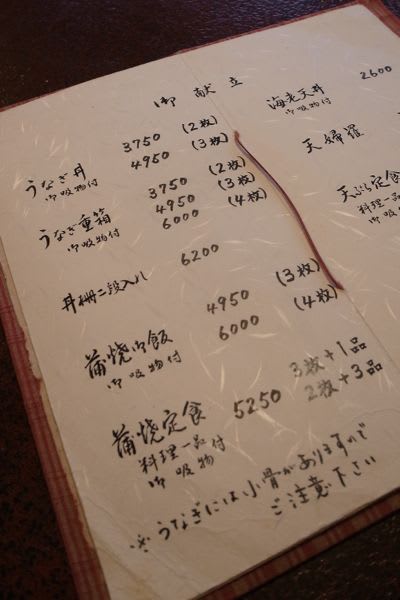 御献立
うなぎ丼 3750 (2枚)
御吸物付 4950 (3枚)
うなぎ重箱 3750 (2枚)
御吸物付 4950 (3枚)
6000 (4枚)
丼冊二段入ル 6200
蒲焼御飯 4950 (3枚)
御吸物付 6000 (4枚)
蒲焼定食 5250 3枚+1品
料理一品付 2枚+3品
御吸物
※うなぎには小骨がありますので
ご注意下さい
海老天丼 2600
御吸物付
天婦羅
天ぷら定食
料理一
御吸